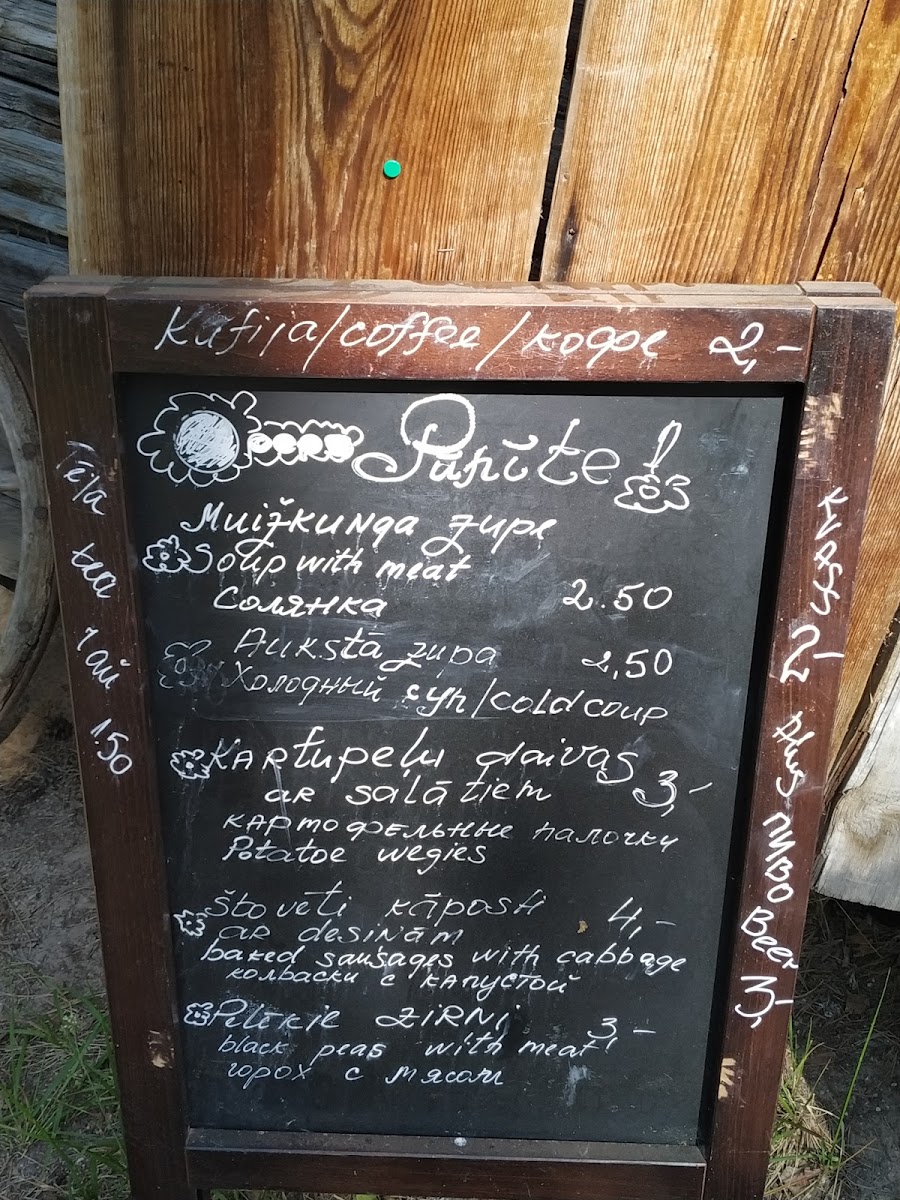 Kafija/coffee/кофе 2,-
Pupiņte!
Muižkunga zupe
Soup with meat
солянка 2.50
Aukstā zupa 2,50
Холодный суп/cold coup
Kartupeļu daivas
ar salātiem 3,-
картофельные палочки
Potatoe wegies
štovēti kāposti 4,-
ar desiņām
baked sausages with cabbage
колбаски с капустой
Pelēkie ZIRŅI 3,-
black peas with meat
горох с мясом
Tēja tea чай 1.50
квас 2,-
Alus пиво Beer 3,-